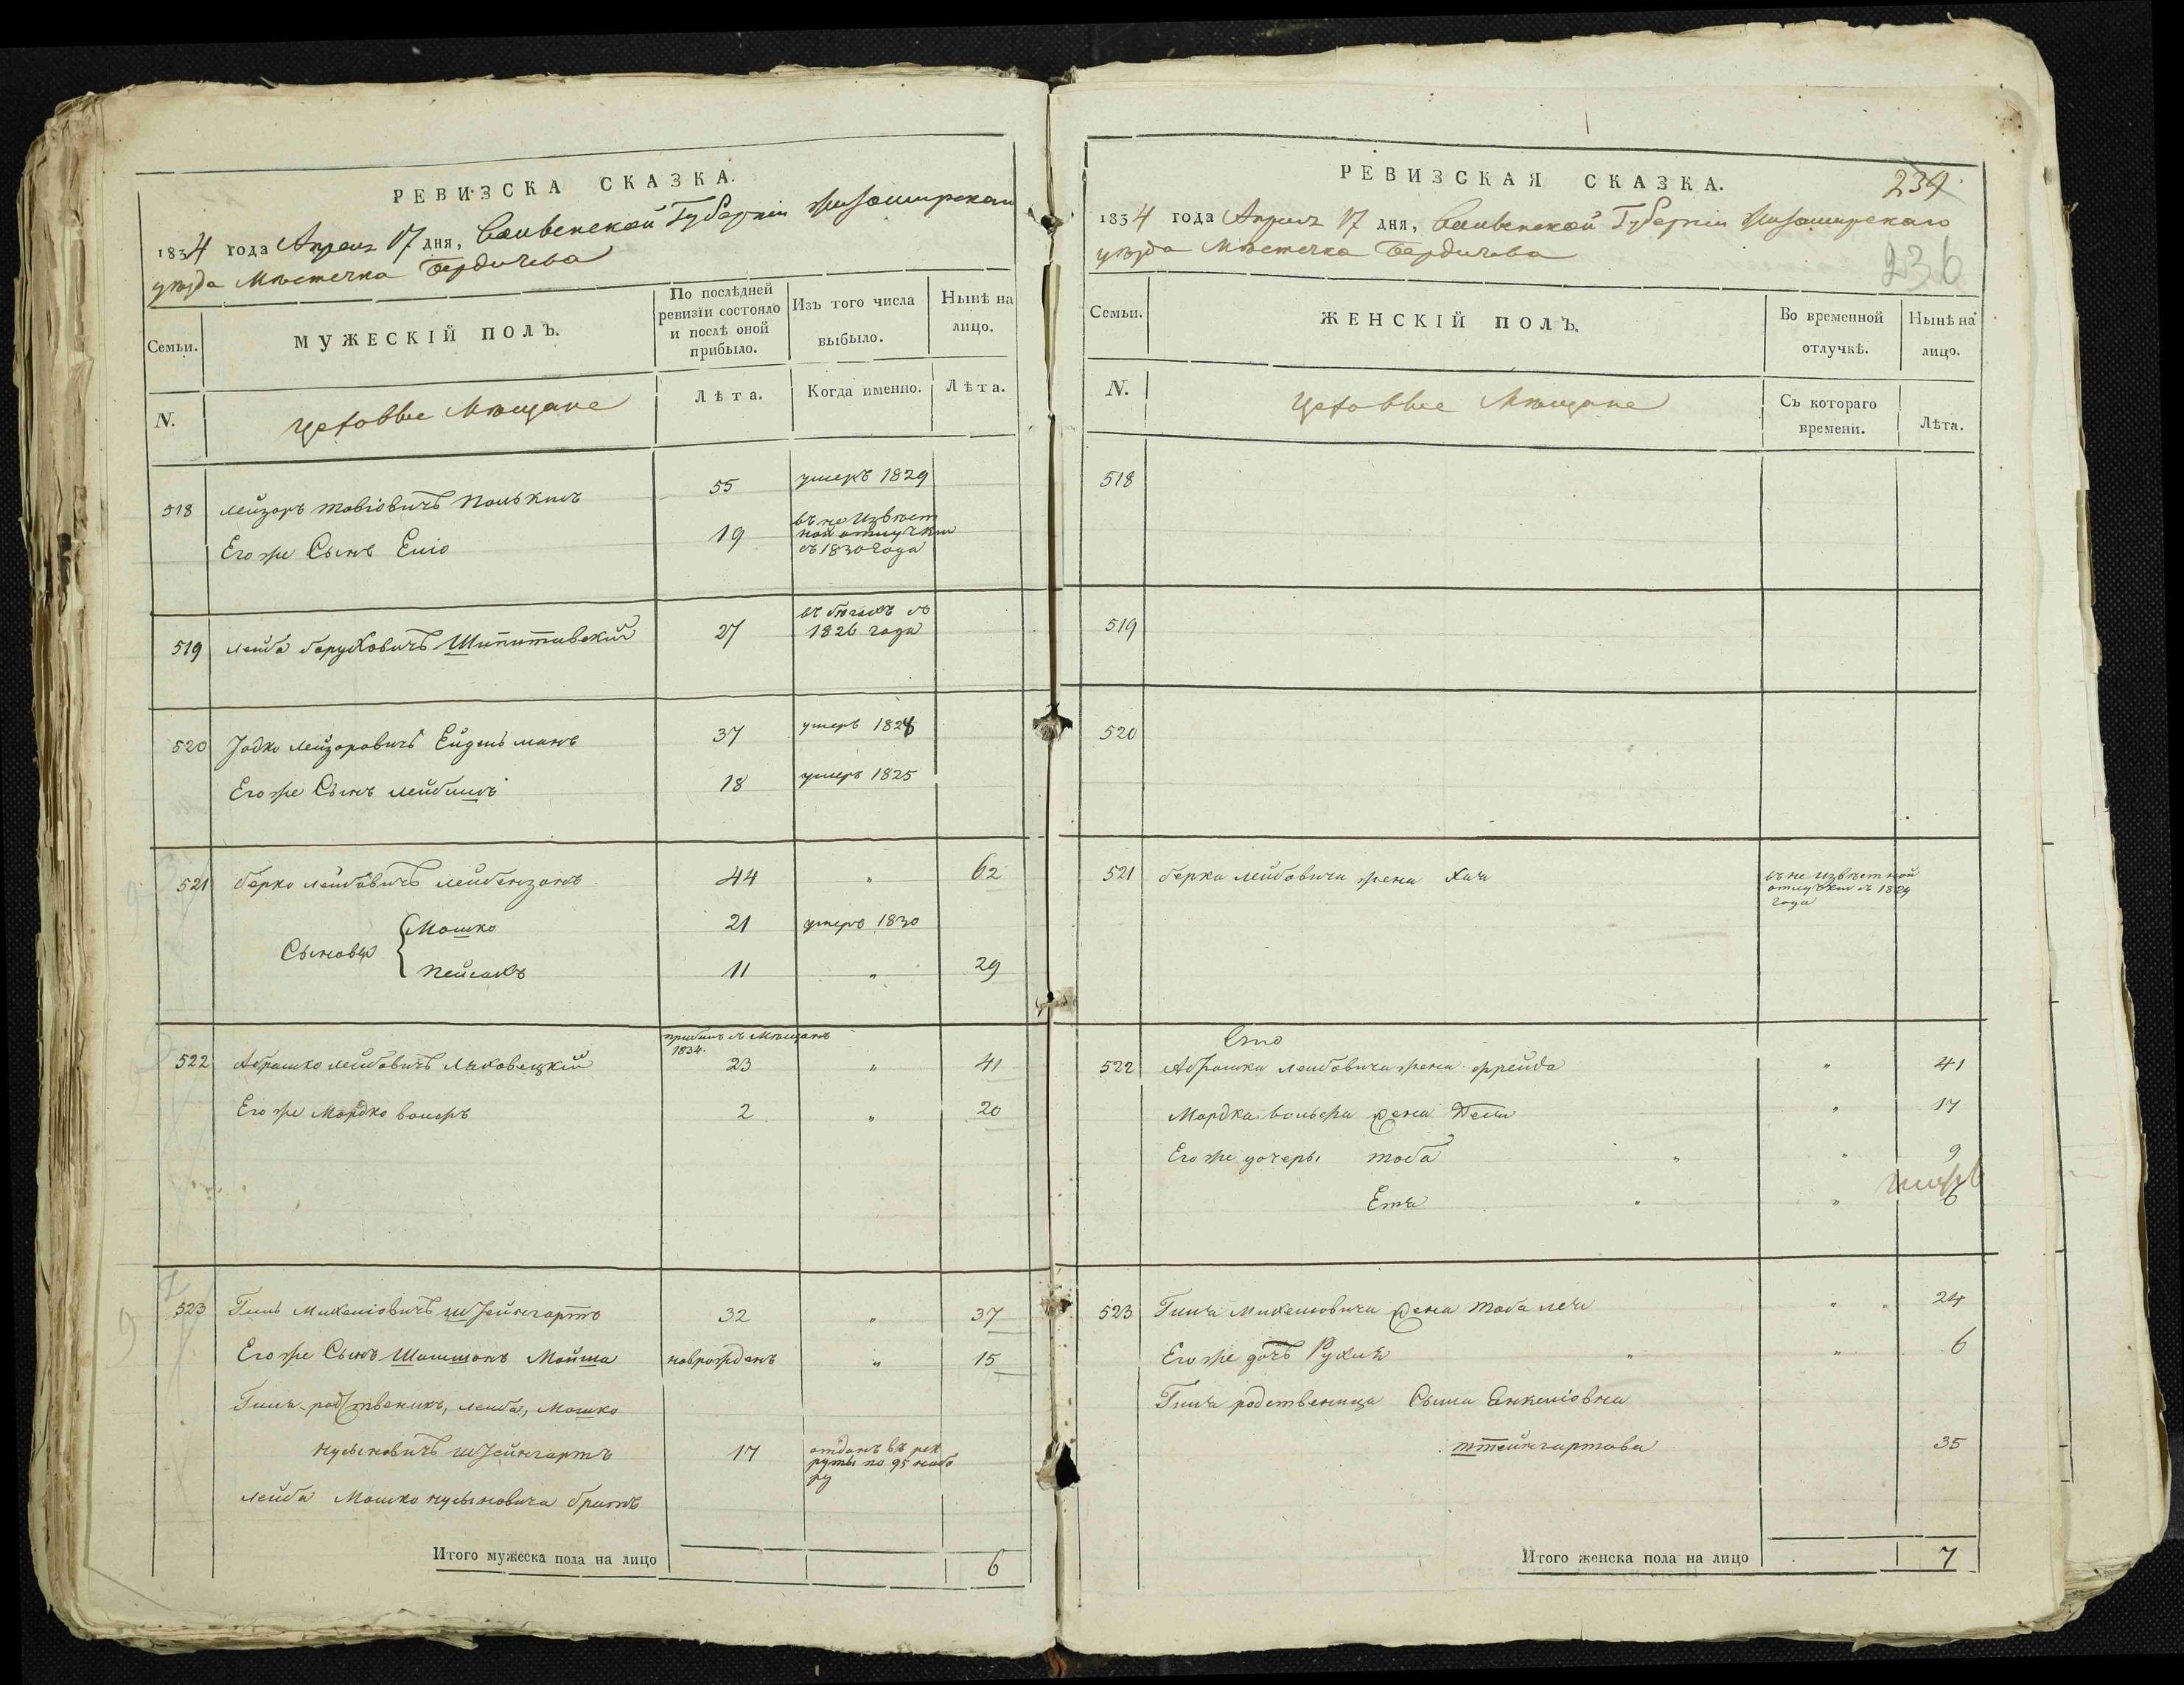 РЕВИЗСКА СКАЗКА.
1834 года Апреля 17 дня, Волынской Губернии Житомирскаго
уѣзда Мѣстечка Бердичева
Семьи.
МУЖЕСКІЙ ПОЛЪ.
По послѣдней ревизіи состояло и послѣ оной прибыло.
Изъ того числа выбыло.
Нынѣ на лицо.
N.
Цеховые Мѣщане
Лѣта.
Когда именно.
Лѣта.
518 Лейзоръ Товіовичъ 55 умеръ 1829
Его же Сынъ Елю 19 въ не извѣст
ной отлучки
съ 1830 года
519 Лейба Боруховичъ Шипитовскій 27 въ бѣгахъ съ
1826 года
520 Іодко Лейзоровичъ Ейдельманъ 37 умеръ 1828
Его же Сынъ Лейбишъ 18 умеръ 1825
521 Берко Лейбовичъ Лейбензонъ 44 " 62
Сыновья Мошко 21 умеръ 1830
Пейсахъ 11 " 29
прибылъ съ Мѣщанъ
1834.
522 Абрашко Лейбовичъ Ляховецкій 23 " 41
Его же Мордко Вольфъ 2 " 20
523 Гиль Михелювичъ Штейнгартъ 32 " 37
Его же Сынъ Шамшонъ Мойша новрожденъ " 15
Гиля родственикъ, Лейба, Мошко
Нусыновичъ Штейнгартъ 17 отданъ въ рек
руты по 95 набо
ру
Лейба Мошко Нусыновича братъ
Итого мужеска пола на лицо 6
РЕВИЗСКАЯ СКАЗКА.
239
1834 года Апреля 17 дня, Волынской Губернии Житомирскаго
уѣзда Мѣстечка Бердичева
236
Семьи.
ЖЕНСКІЙ ПОЛЪ.
Во временной отлучкѣ.
Нынѣ на лицо.
N.
Цеховые Мѣщане
Съ котораго времени.
Лѣта.
518
519
520
521 Берка Лейбовича жена Хая въ не извѣстной
отлучки съ 1829
года
522 Абрашки Лейбовича жена Фрейда " 41
Мордка Вольфа жена " 17
Его же дочеры Тоба " " 9
Етя " " 6
523 Гиля Михелювича жена Тоба Лея " 24
Его же дочь Рухля " " 6
Гиля родственица Сыма Енкеліовна
Штейнгартова 35
Итого женска пола на лицо 7